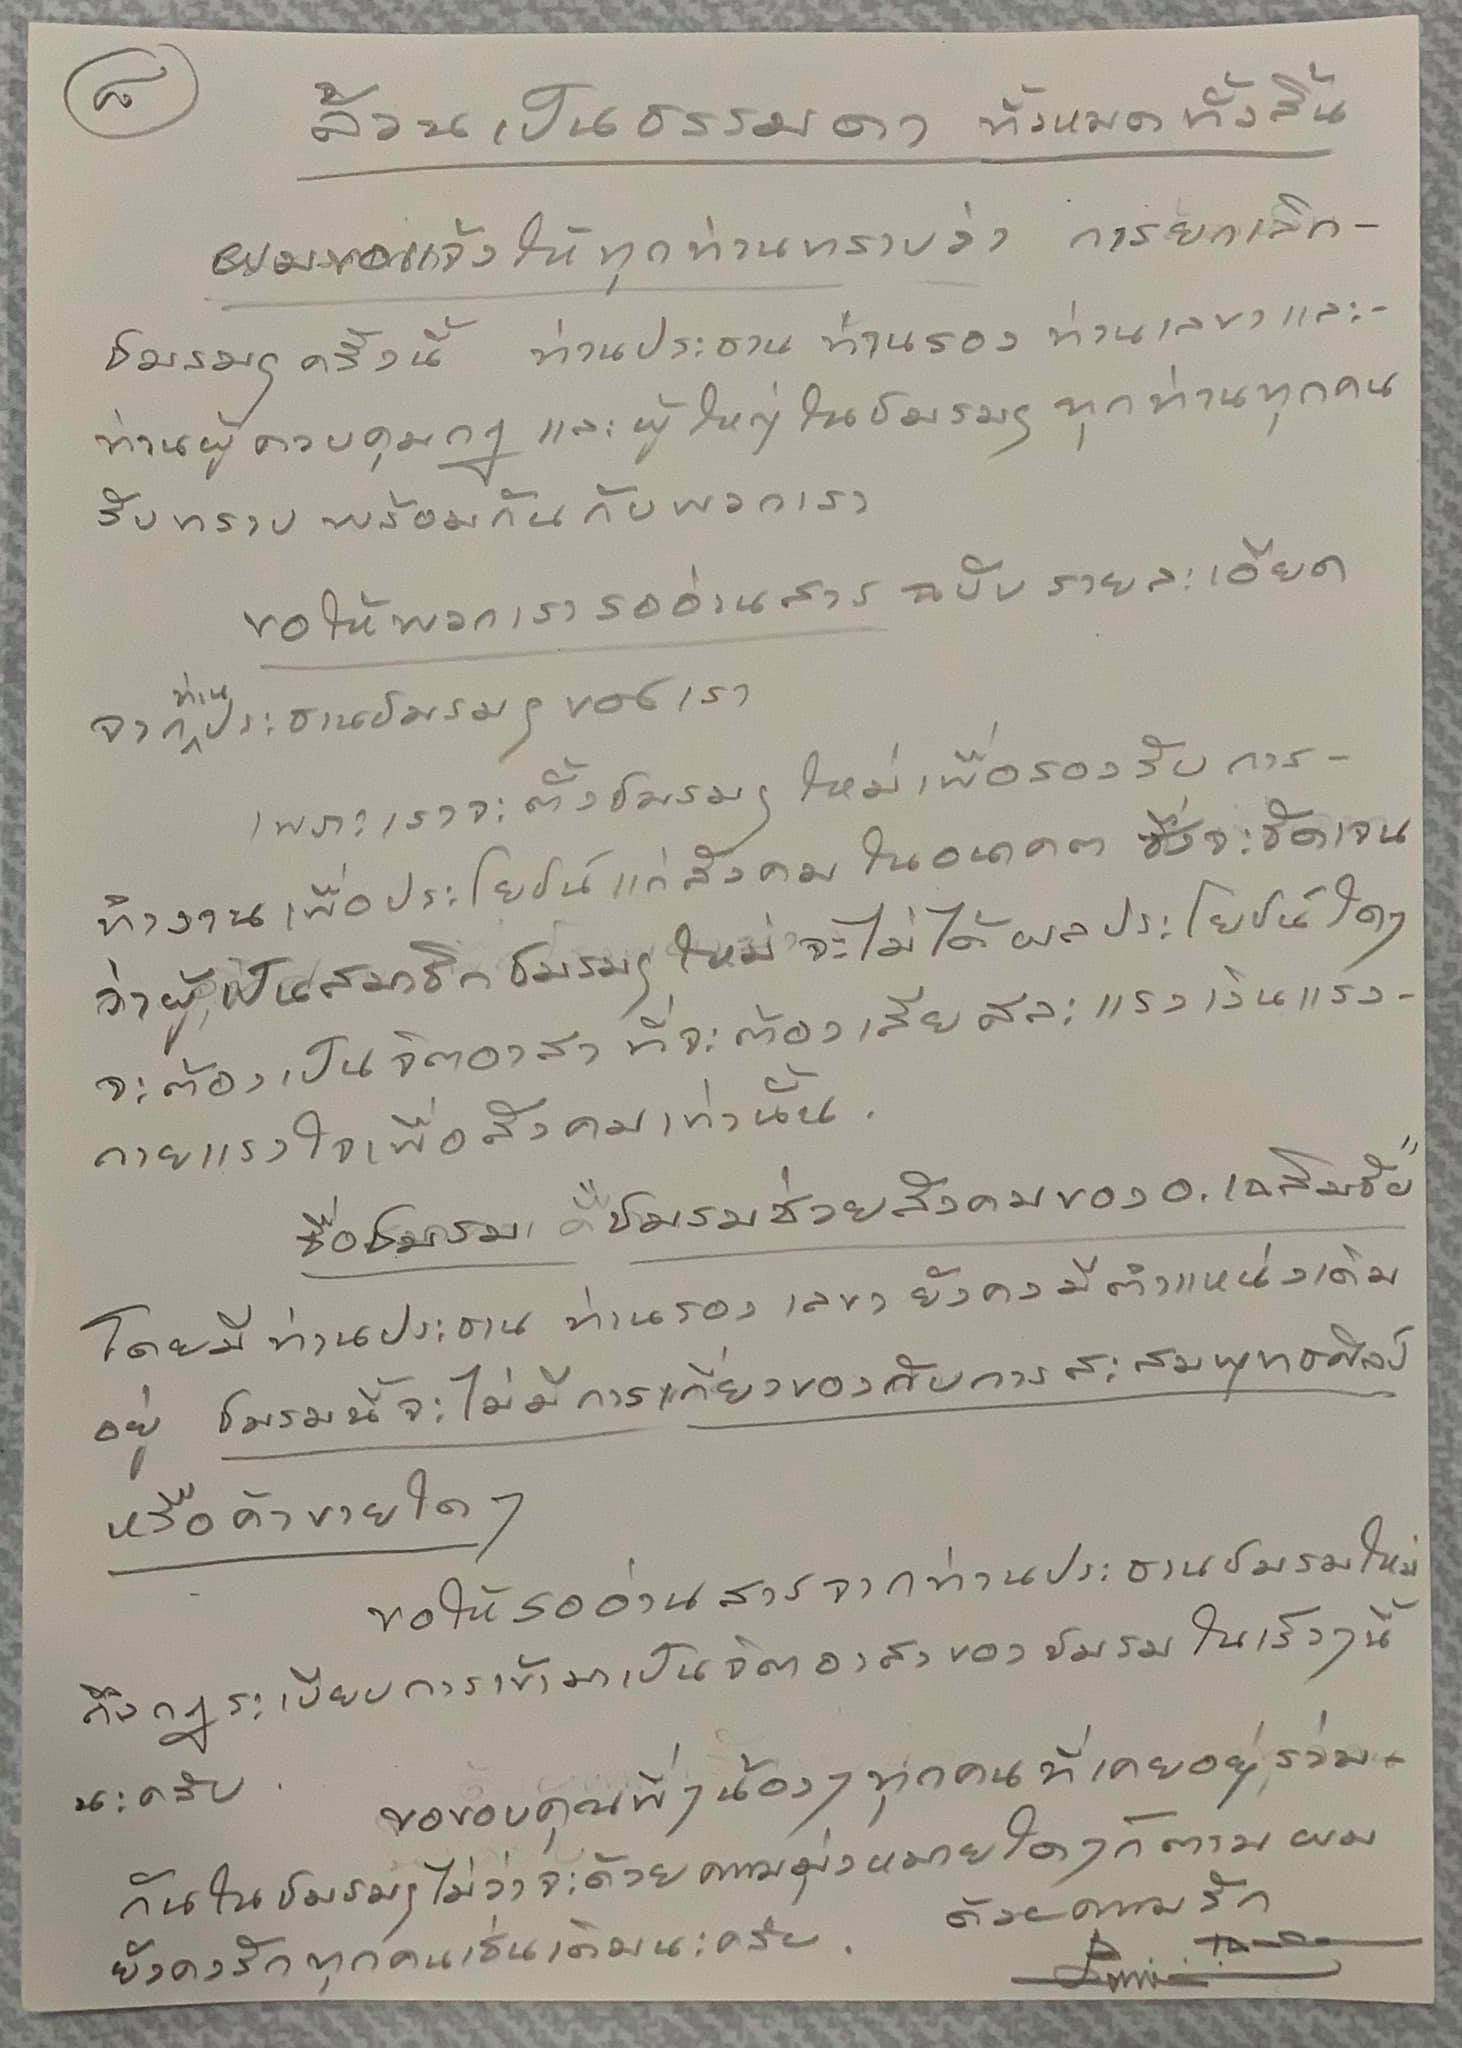 ๘
ล้วนเป็นธรรมดา ทั้งหมดทั้งสิ้น
ผมขอแจ้งให้ทุกท่านทราบว่า การยกเลิก-
ชมรมฯ ครั้งนี้ ท่านประธาน ท่านรอง ท่านเลขา และ-
ท่านผู้ควบคุมกฎ และผู้ใหญ่ในชมรมฯ ทุกท่านทุกคน
รับทราบ พร้อมกันกับพวกเรา
ขอให้พวกเรารออ่านสาร ฉบับรายละเอียด
จากท่านประธานชมรมฯ ของเรา
เพราะเราจะตั้งชมรมฯ ใหม่เพื่อรองรับการ-
ทำงานเพื่อประโยชน์แก่สังคมในอนาคต ซึ่งจะชัดเจน
ว่าผู้เป็นสมาชิกชมรมฯ ใหม่ จะไม่ได้ผลประโยชน์ใดๆ
จะต้องเป็นจิตอาสา ที่จะต้องเสียสละแรงเงินแรง-
กายแรงใจเพื่อสังคมเท่านั้น.
ชื่อชมรม คือ "ชมรมช่วยสังคมของอ.เฉลิมชัย"
โดยมีท่านประธาน ท่านรอง เลขา ยังคงมีตำแหน่งเดิม
อยู่ ชมรมนี้จะไม่มีการเกี่ยวของกับการสะสมพุทธศิลป์
หรือค้าขายใดๆ
ขอให้รออ่านสารจากท่านประธานชมรมใหม่
ถึงกฎระเบียบการเข้ามาเป็นจิตอาสาของชมรมในเร็วๆนี้
นะครับ.
ขอขอบคุณพี่ๆน้องๆทุกคนที่เคยอยู่ร่วม-
กันในชมรมฯไม่ว่าจะด้วยความมุ่งหมายใดๆก็ตาม ผม
ยังคงรักทุกคนเช่นเดิมนะครับ.
ด้วยความรัก